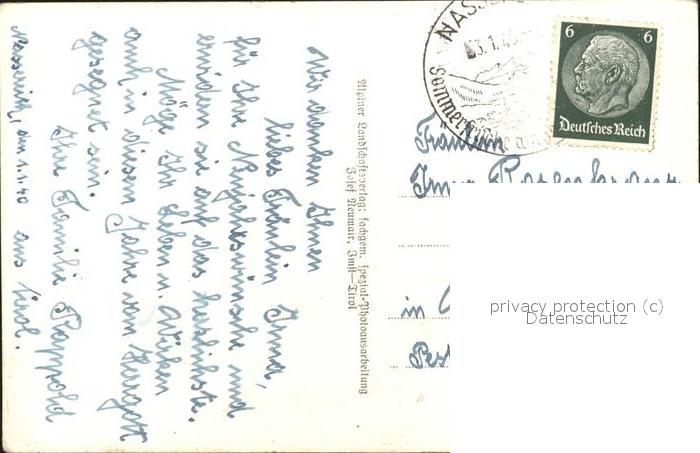 Wir danken Ihnen
liebes Fräulein Irma,
für Ihre Neujahrswünsche und
erwidern sie auf das herzlichste.
Möge Ihr Leben u. Wirken
auch in diesem Jahre von Herrgott
gesegnet sein.
Ihre Familie Rappold
Nassereith, den 1.1.40 aus Tirol.
Alpiner Landschaftsverlag: fachgem. spezial-Photoausarbeitung
Josef Neumair, Imst—Tirol
NASSE
3.1.40
Sommerfrische
6 6
Deutsches Reich
Fräulein
in
privacy protection (c)
Datenschutz